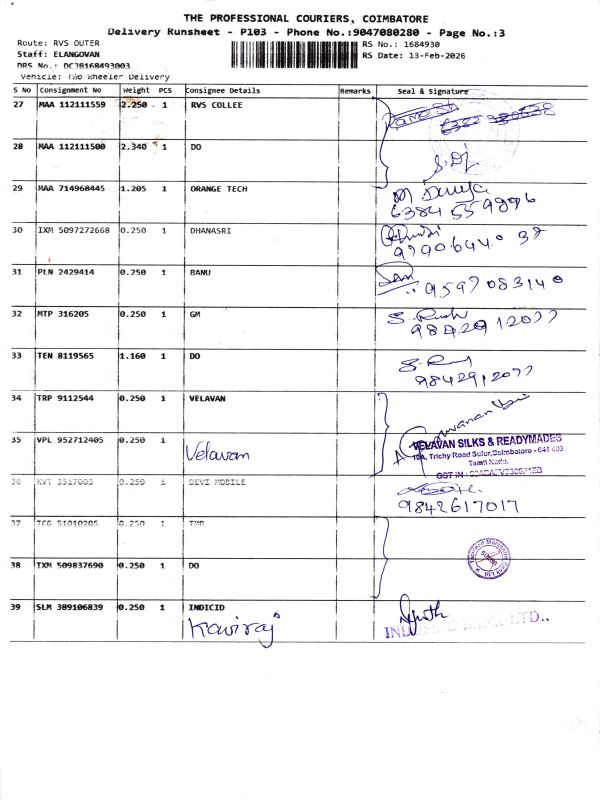 THE PROFESSIONAL COURIERS, COIMBATORE
Delivery Runsheet - P103 - Phone No.:9047080280 - Page No.:3
Route: RVS OUTER
RS No.: 1684930
Staff: ELANGOVAN
RS Date: 13-Feb-2026
DRS No.: DCJB168493003
Vehicle: Two Wheeler Delivery
S No Consignment No Weight PCS Consignee Details Remarks Seal & Signature
27 MAA 112111559 2.250 1 RVS COLLEE
28 MAA 112111500 2.340 1 DO
29 MAA 714968445 1.205 1 ORANGE TECH
6384559896
30 IXM 5097272668 0.250 1 DHANASRI
9790644037
31 PLN 2429414 0.250 1 BANU
9597083140
32 MTP 316205 0.250 1 GM
9842912077
33 TEN 8119565 1.160 1 DO
9842912077
34 TRP 9112544 0.250 1 VELAVAN
35 VPL 952712405 0.250 1
Velavan
VELAVAN SILKS & READYMADES
10A, Trichy Road Sulur, Coimbatore - 641 402
Tamil Nadu.
GST IN :
36 KVT 3517003 0.250 1 DEVI MOBILE
9842617017
37 TCG 51010205 0.250 1 TMB
38 IXM 509837690 0.250 1 DO
39 SLM 389106839 0.250 1 INDICID
Kaviraj
INDUSIND BANK LTD..